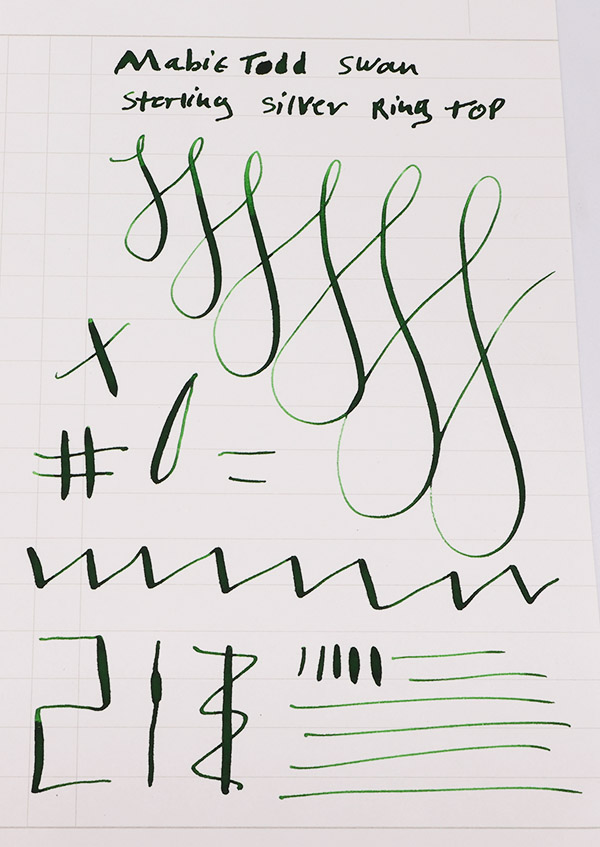 Mabie Todd Swan
Sterling Silver Ring Top